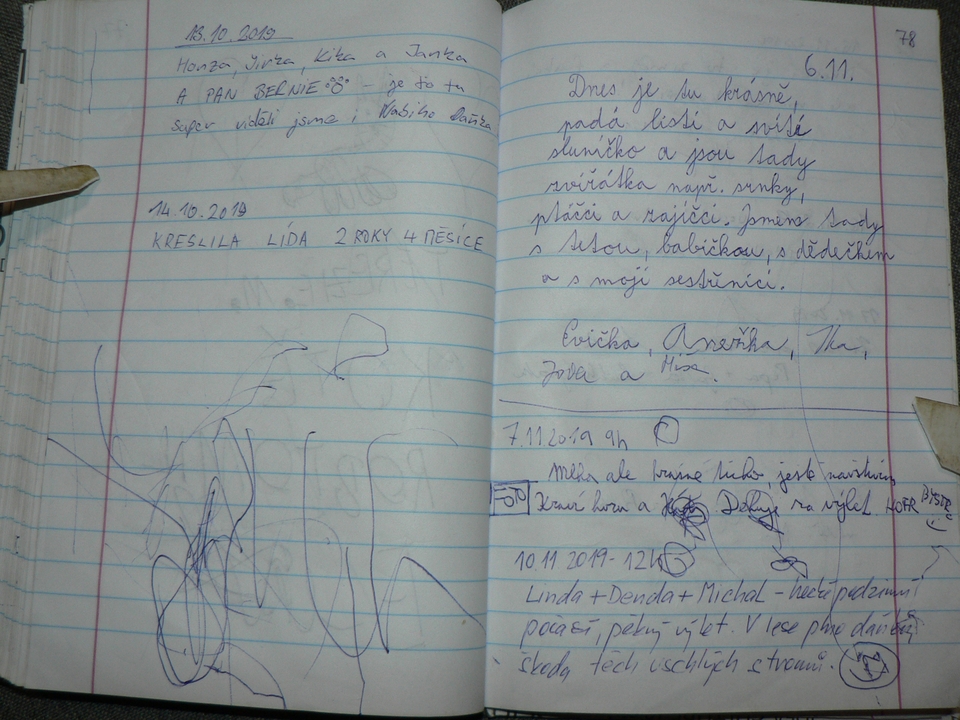 13.10.2019
Honza, Jirka, Kika a Janka
A PAN BERNIE – je to tu
super viděli jsme i Našiho Daňka
14.10.2019
KRESLILA LÍDA 2 ROKY 4 MĚSÍCE
78
6.11.
Dnes je tu krásně,
padá listí a svítí
sluníčko a jsou tady
zvířátka např. srnky,
ptáčci a zajíčci. Jsmene tady
s tetou, babičkou, s dědečkem
a s mojí sestřenicí.
Evička, Anežka,
a Míša.
7.11.2019 9h
Mlha ale krásné ticho, ještě navštívím
horu a Děkuji za výlet. HOFR BYSTRC
10.11 2019 - 12h
Linda + Denda + Michal – hezké podzimní
počasí, pěkný výlet. V lese plno
škoda těch uschlých stromů.